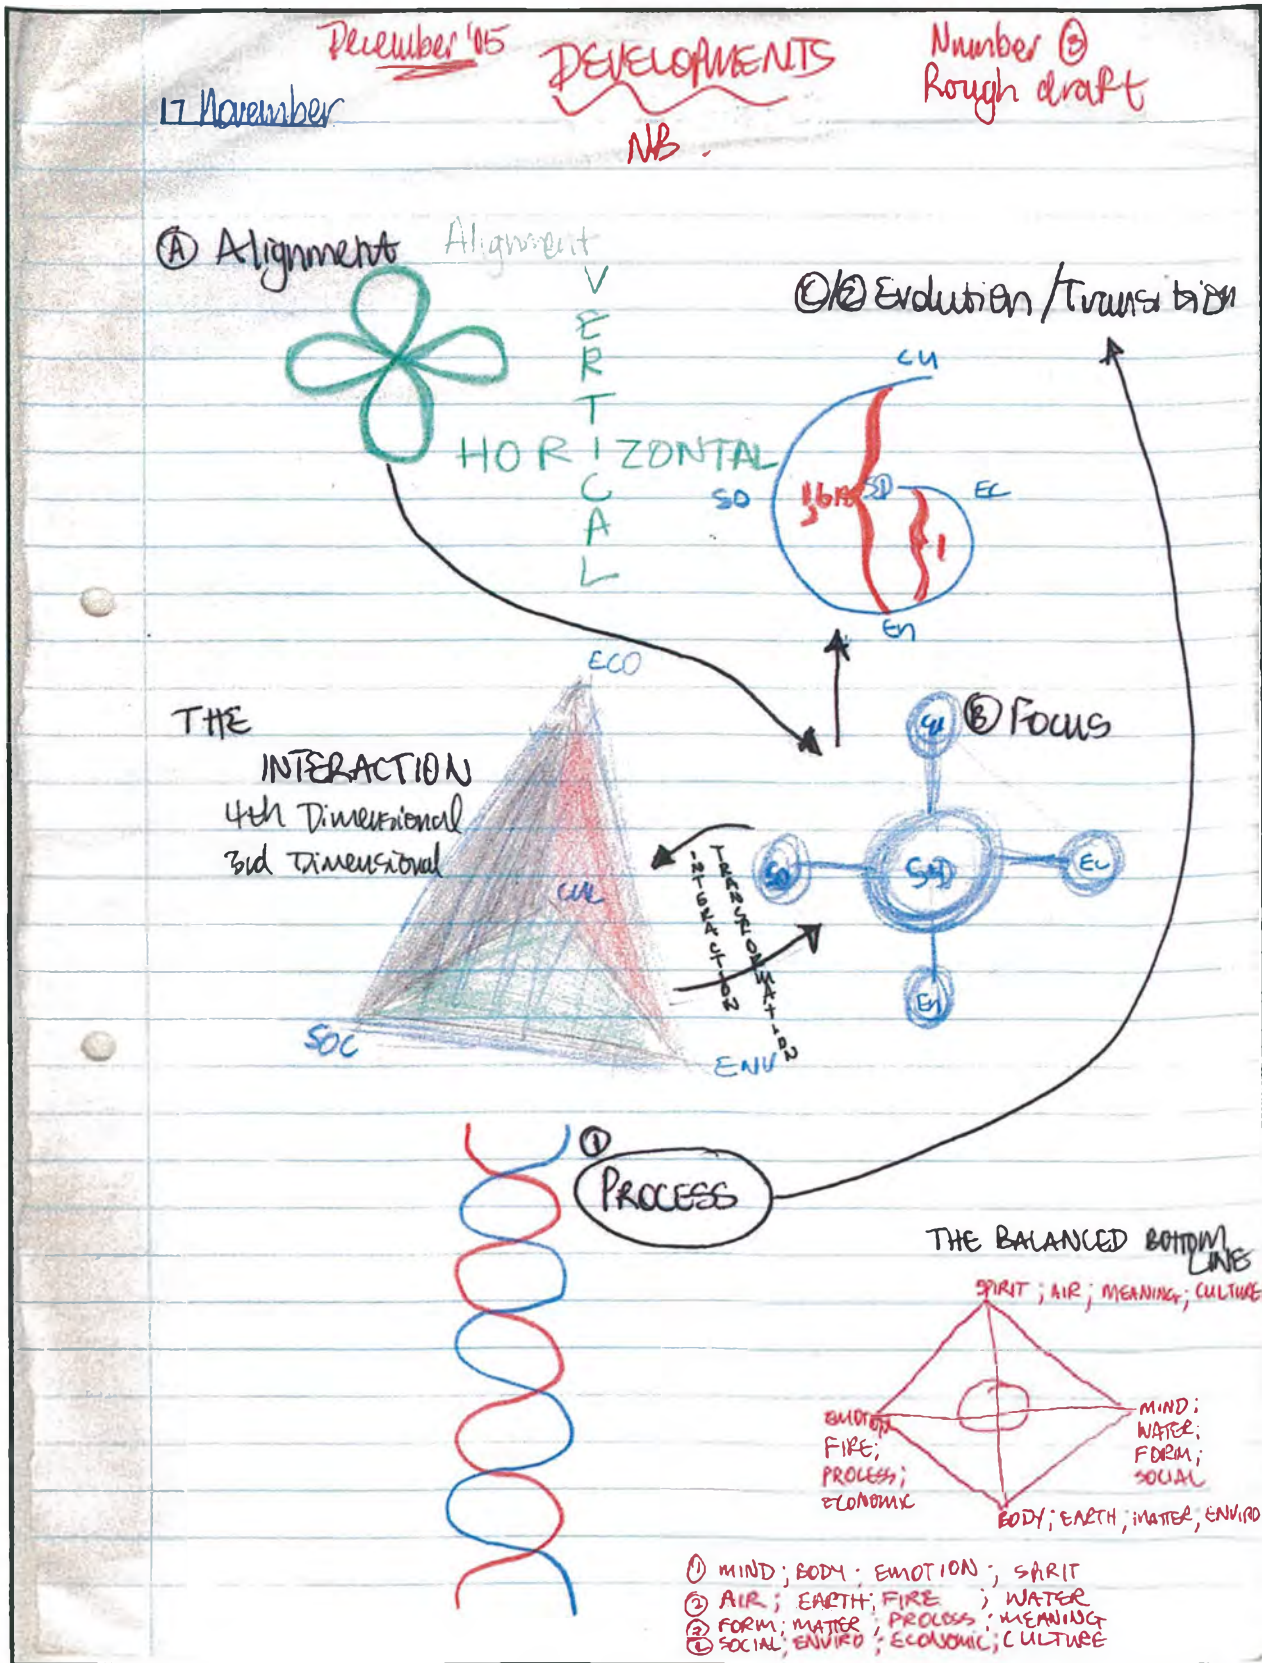 December '05
DEVELOPMENTS
Number ③
Rough draft
17 November
NB.
Ⓐ Alignment
Alignment
VERTICAL
HORIZONTAL
Evolution / Transition
CU
SO
SD
EC
1
En
ECO
THE
INTERACTION
4th Dimensional
3rd Dimensional
CUL
SOC
ENV
INTERACTION
TRANSFORMATION
Ⓑ FOCUS
CU
SO
SD
EC
En
①
PROCESS
THE BALANCED BOTTOM
LINE
SPIRIT ; AIR ; MEANING ; CULTURE
EMOTION
FIRE;
PROCESS;
ECONOMIC
MIND;
WATER;
FORM;
SOCIAL
BODY; EARTH; MATTER; ENVIRO
① MIND; BODY; EMOTION; SPIRIT
② AIR; EARTH; FIRE ; WATER
FORM; MATTER; PROCESS; MEANING
SOCIAL; ENVIRO; ECONOMIC; CULTURE